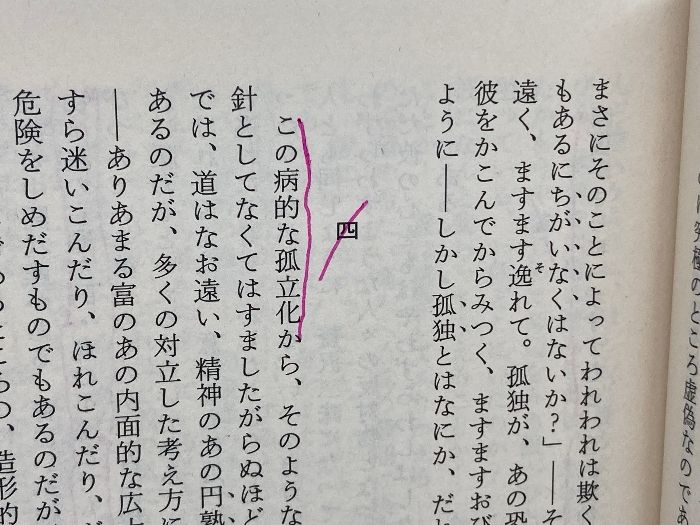 は究極のところ虚偽なのであ
まさにそのことによってわれわれは欺く
もあるにちがいなくはないか?」――そ
遠く、ますます逸れて。孤独が、あの恐
彼をかこんでからみつく、ますますおび
ように――しかし孤独とはなにか、だれ
四
この病的な孤立化から、そのような
針としてなくてはすましたがらぬほど
では、道はなお遠い、精神のあの円熟
あるのだが、多くの対立した考え方に
――ありあまる富のあの内面的な広大
すら迷いこんだり、ほれこんだり、
危険をしめだすものでもあるのだが
造形的